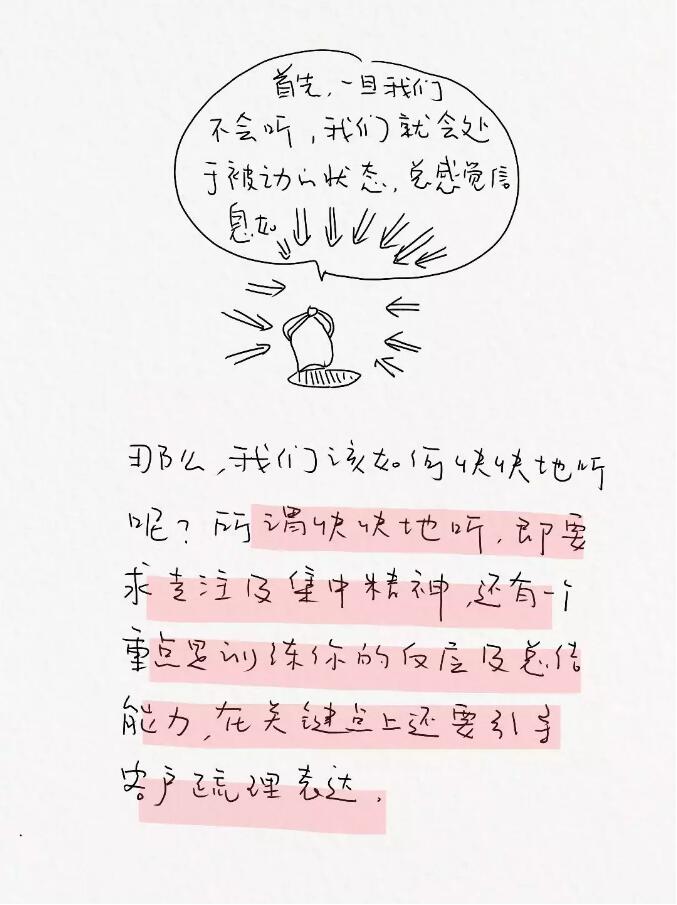 首先，一旦我们
不会听，我们就会处
于被动的状态，总感觉信
息如
那么，我们该如何快快地听
呢？所谓快快地听，即要
求专注及集中精神，还有一个
重点是训练你的反应及总结
能力，在关键点上还要引导
客户疏理表达．